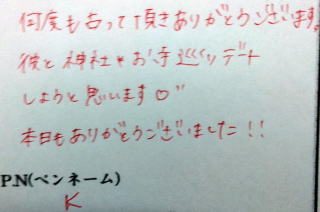 何度も占って頂きありがとうございます。
彼と神社やお寺巡りデート
しようと思います♡"
本日もありがとうございました!!
P.N(ペンネーム)
K